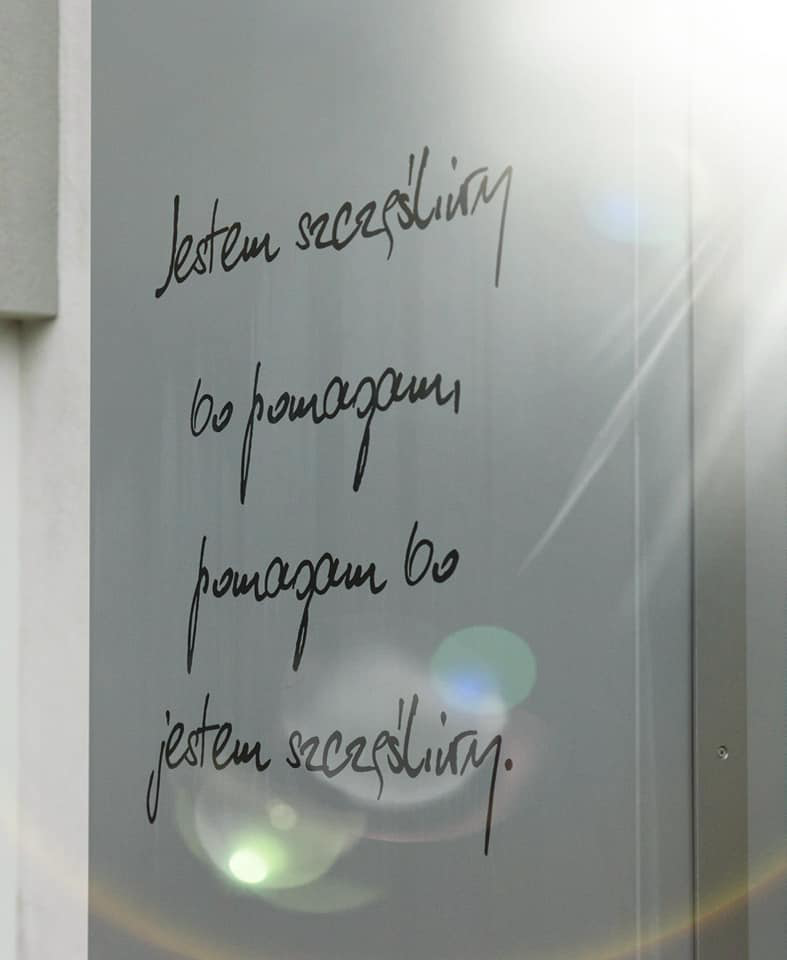 Jestem szczęśliwy
bo pomagam,
pomagam bo
jestem szczęśliwy.